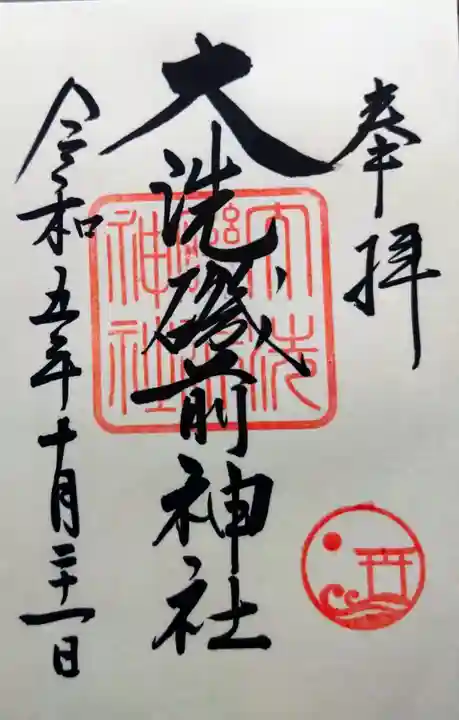 奉拝
大洗磯前神社
大洗磯前神社
令和五年十月二十一日